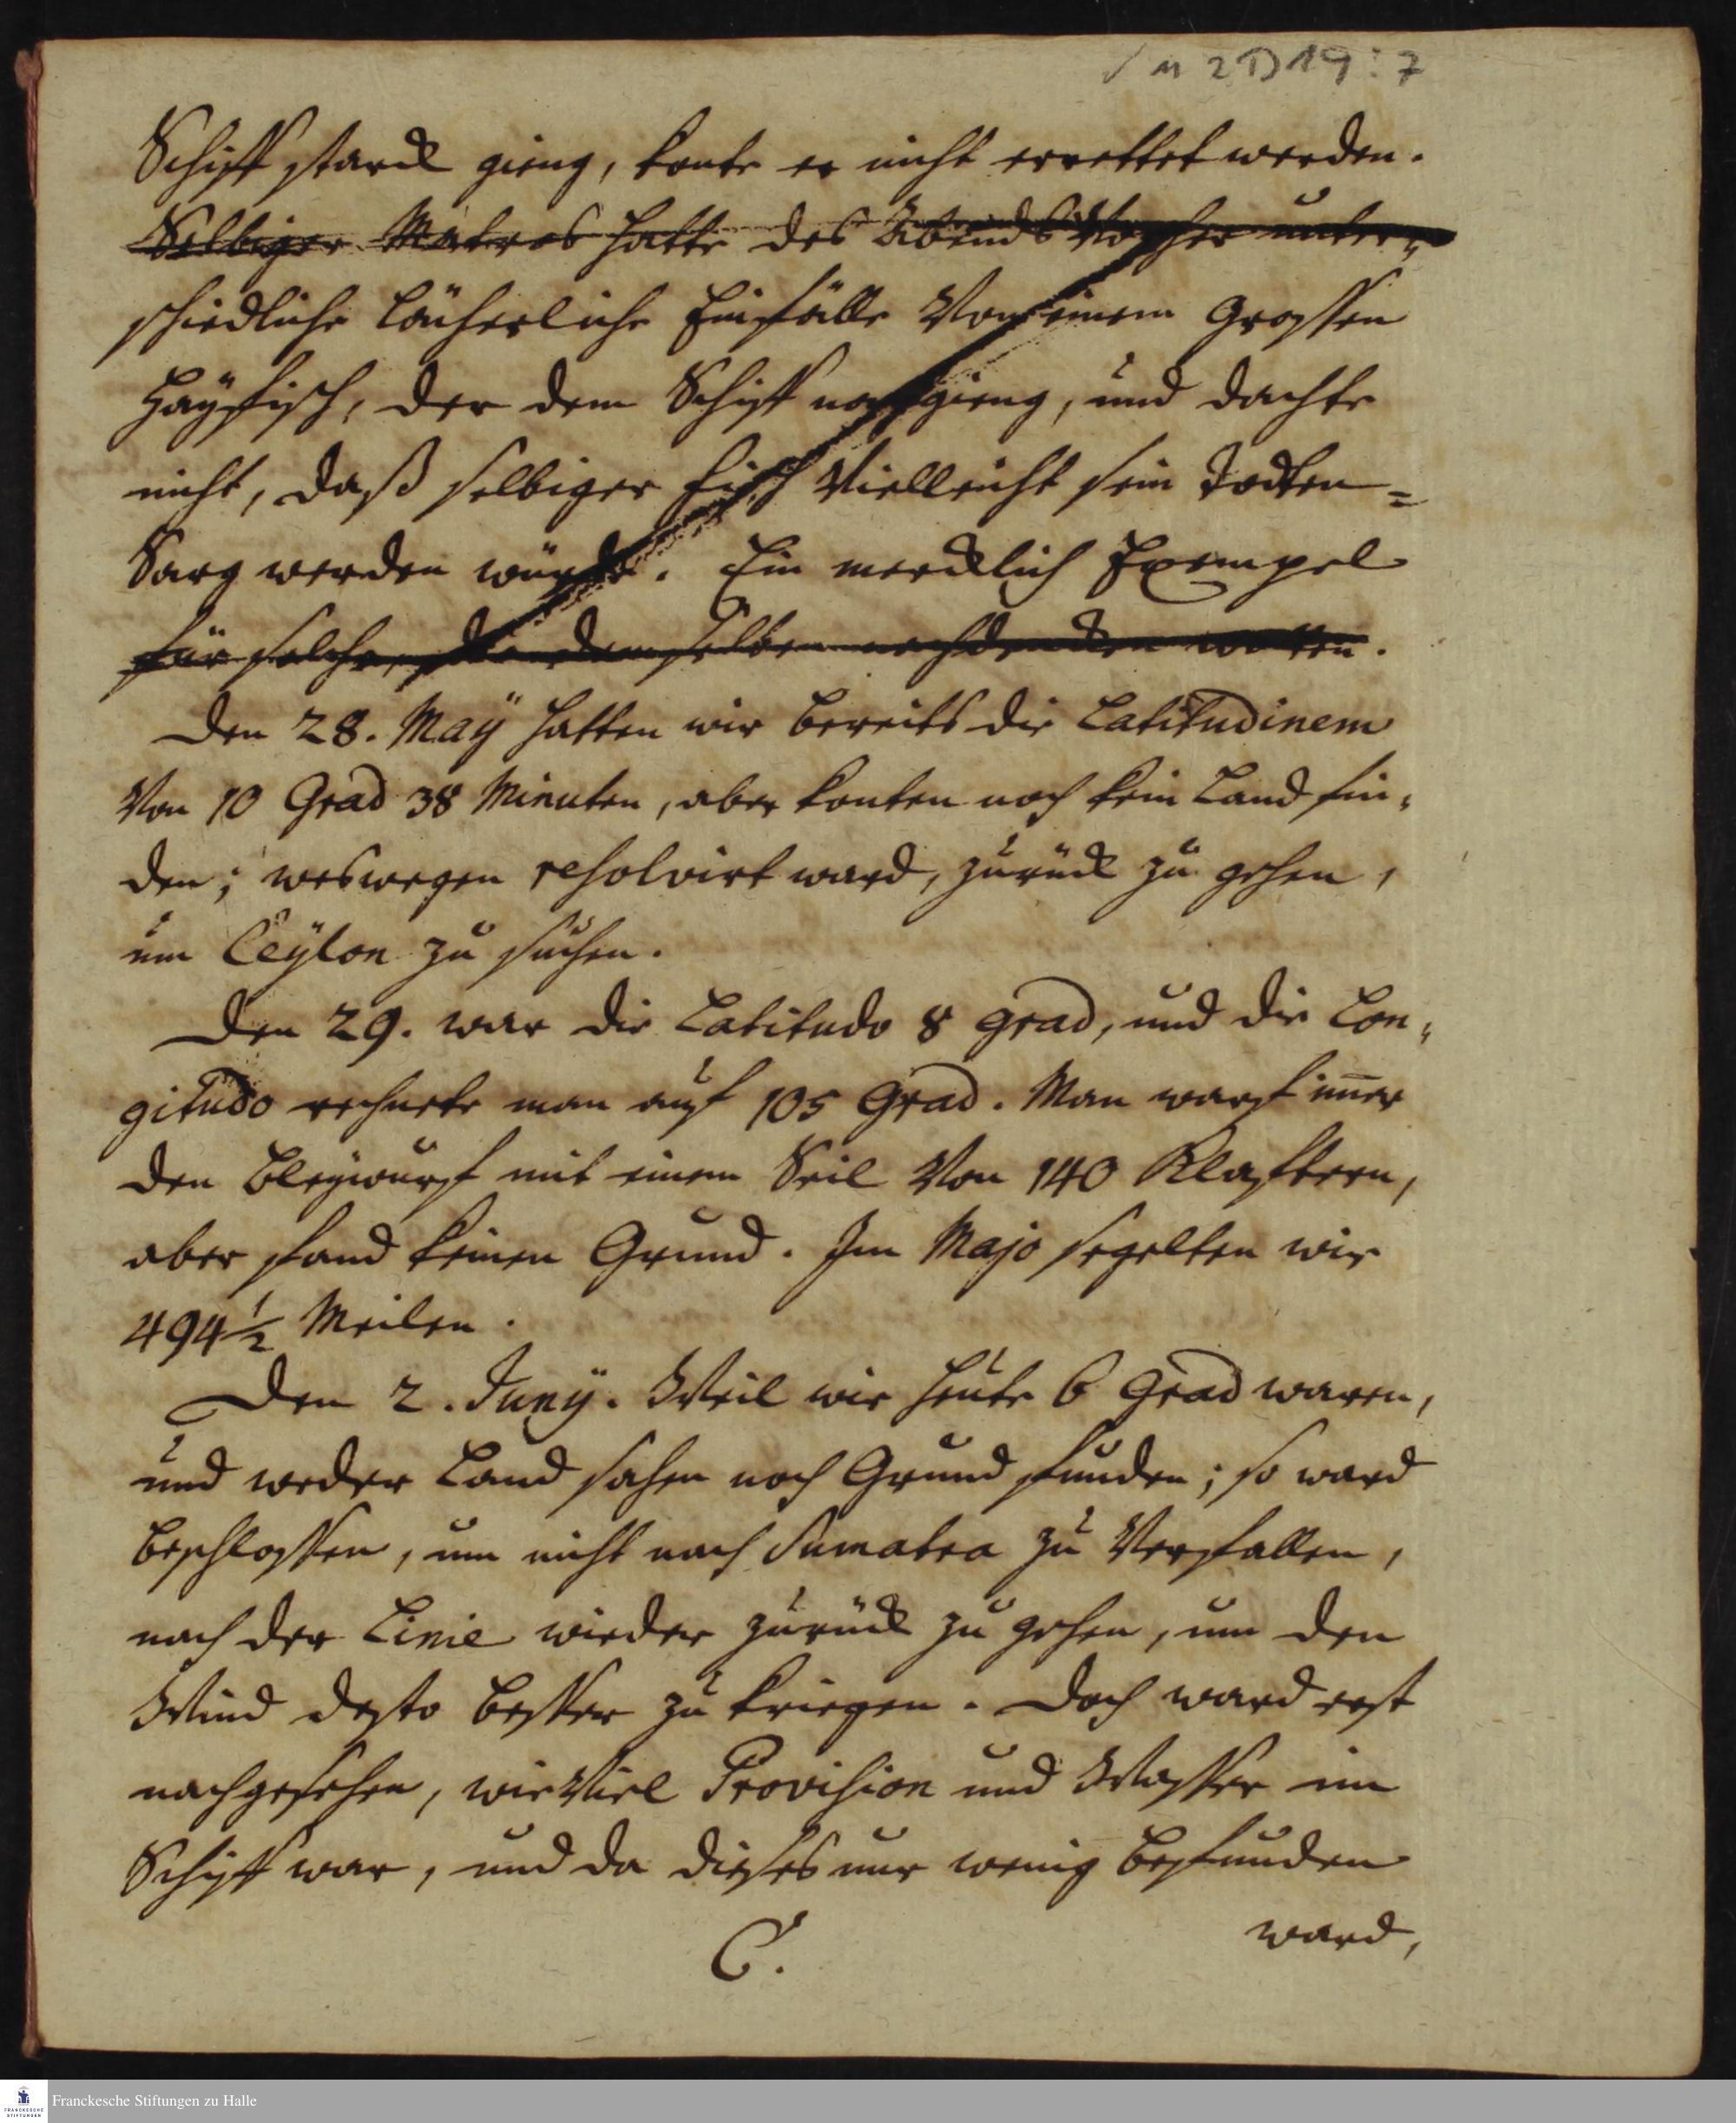 / M 2 D 19 : 7
Schiff starck gieng, konte er nicht errettet werden.
Selbiger Matros hatte des Abends vorher unter-
schiedliche lächerliche Einfälle von einem grossen
Hayfisch, der dem Schiff nachgieng, und dachte
nicht, daß selbiger Fisch vielleicht sein Todten=
Sarg werden würde. Ein mercklich Exempel
für solche, die demselben nachdencken wollen.
Den 28. Maÿ hatten wir bereits die Latitudinem
von 10 Grad 38 Minuten, aber konten noch kein Land fin-
den; weswegen resolvirt ward, zurück zu gehen,
um Ceÿlon zu suchen.
Den 29. war die Latitudo 8 grad, und die Lon-
gitudo rechnete man auf 105 Grad. Man warf im̄er
den Bleywurf mit einem Seil von 140 Klaftern,
aber fand keinen Grund. Im Majo segelten wir
494 1/2 Meilen.
Den 2. Junÿ. Weil wir heute 6 Grad waren,
und weder Land sahen noch Grund funden; so ward
beschlossen, um nicht nach Sumatra zu verfallen,
nach der Linie wieder zurück zu gehen, um den
Wind desto besser zu kriegen. Doch ward erst
nachgesehen, wie viel Provision und Wasser im
Schiff war, und da dieses nur wenig befunden
C. ward,
Franckesche Stiftungen zu Halle
FRANCKESCHE
STIFTUNGEN